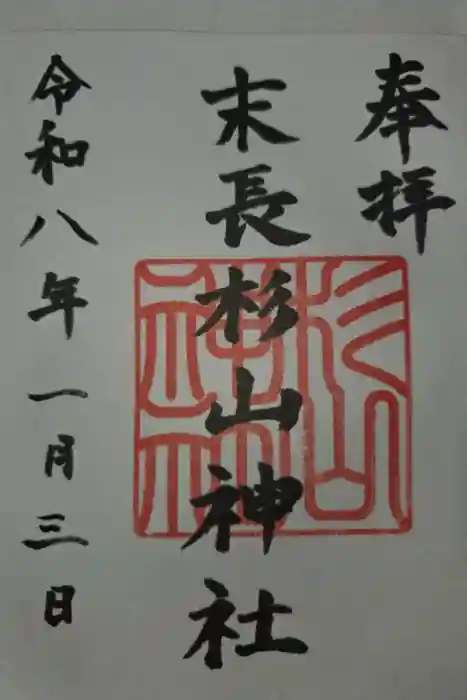 奉拝
末長杉山神社
令和八年一月三日
杉山神社